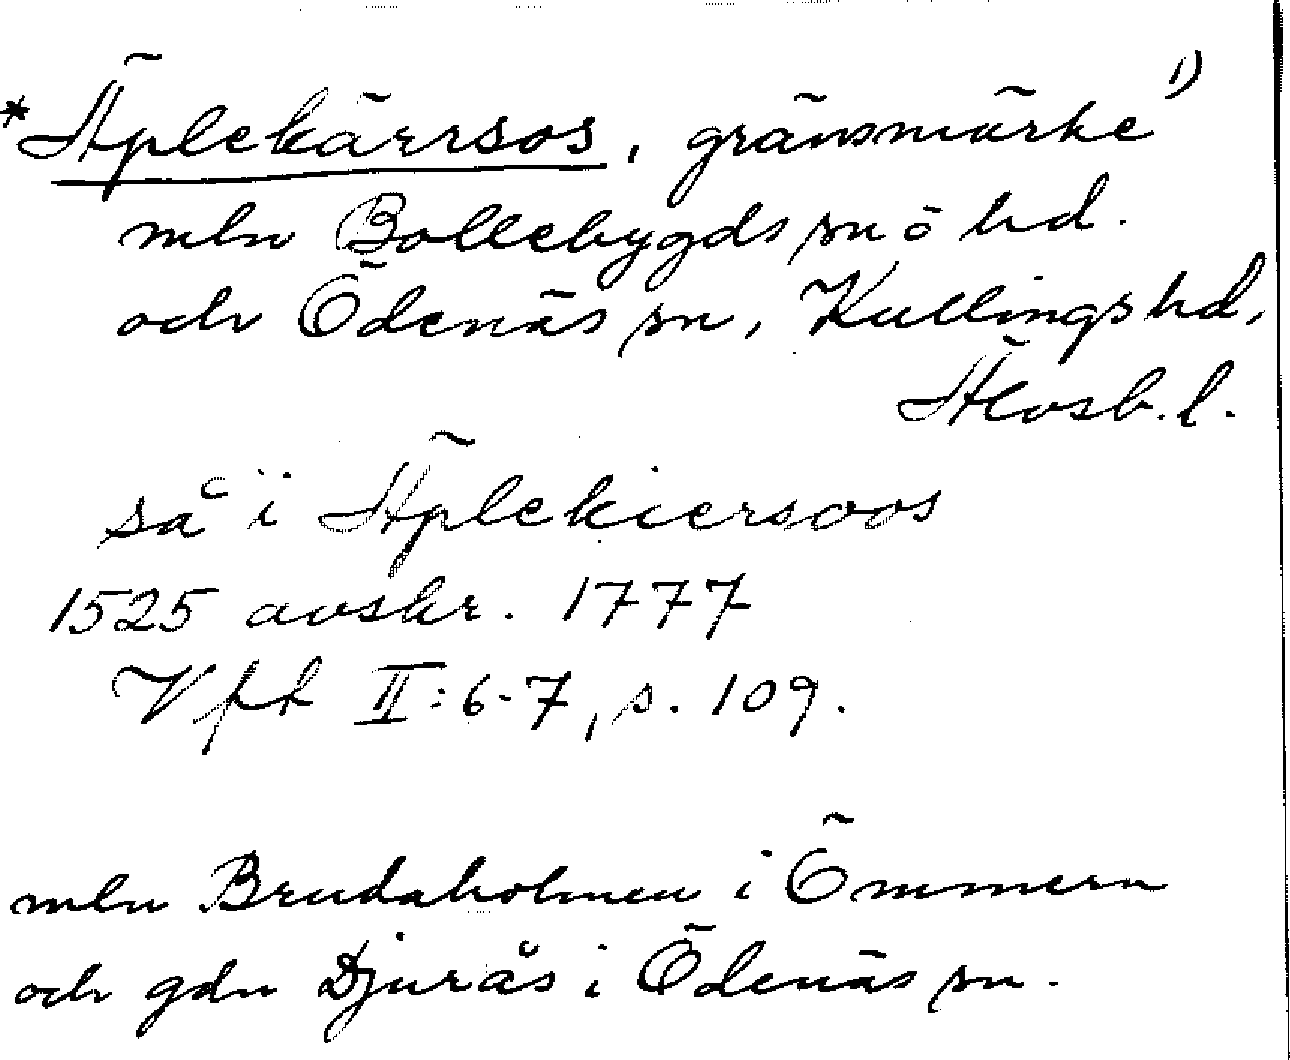 *Äplekärrsos, gränsmärke 1)
mln Bollebygds sn o hd.
och Ödenäs sn, Kullings hd,
Älvsb. l.
så i Äplekiersoos
1525 avskr. 1777
Vft II:6-7, s. 109.
mln Brudaholmen i Ömmern
och gdn Djurås i Ödenäs sn.